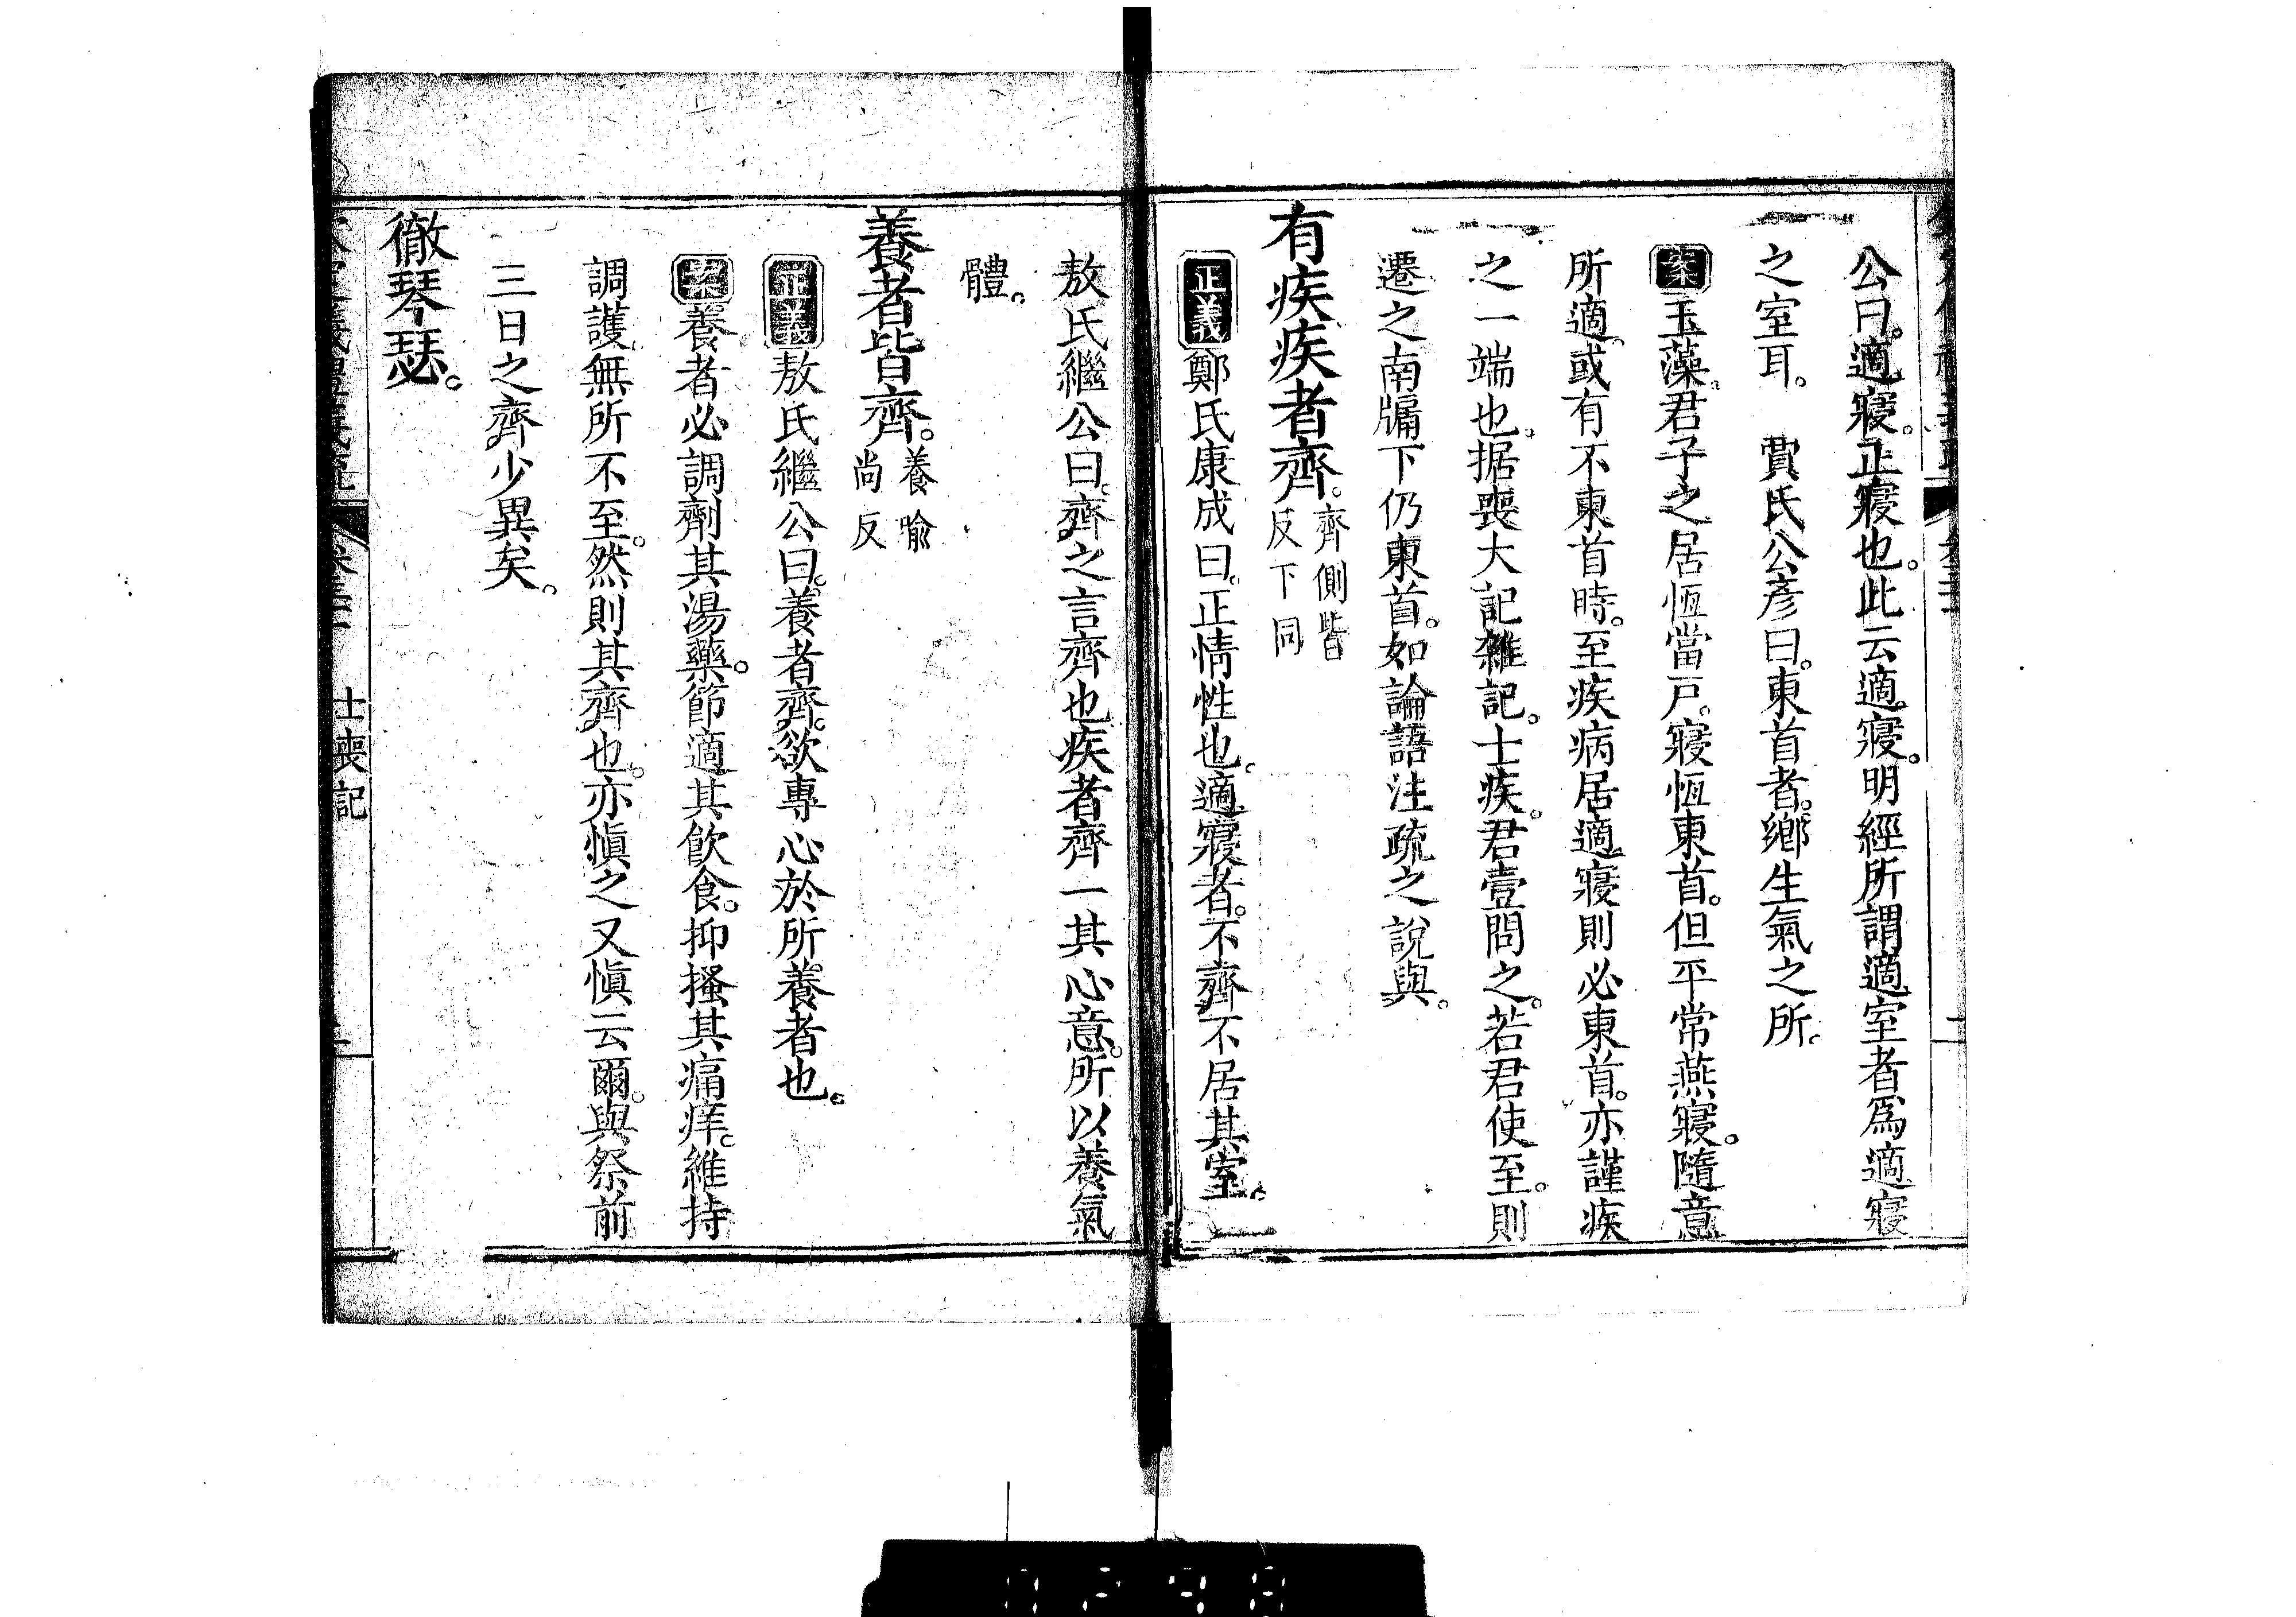 公曰。適寢。正寢也。此云適。寢。明經所謂適室者爲適寢
之室耳。 賈氏公彥曰。東首者。鄉生氣之所。
案玉藻。君子之居恆當戸。寢恆東首。但平常燕寢。隨意
所適。或有不東首時。至疾病居適寢則必東首。亦謹疾
之一端也。据喪大記雜記。士疾。君壹問之。若君使至。則
遷之南牖下仍東首。如論語注疏之說與。
有疾疾者齊。齊側皆
反下同
正義鄭氏康成曰。正情性也。適寢者。不齊不居其室。
敖氏繼公曰。齊之言齊也。疾者齊一其心意。所以養氣
體。
養者皆齊。養喻
尚反
正義敖氏繼公曰。養者齊。欲專心於所養者也。
案養者必調劑其湯藥。節適其飲食。抑搔其痛痒。維持
調護。無所不至。然則其齊也。亦愼之又愼云爾。與祭前
三日之齊少異矣。
徹琴瑟。
士喪記